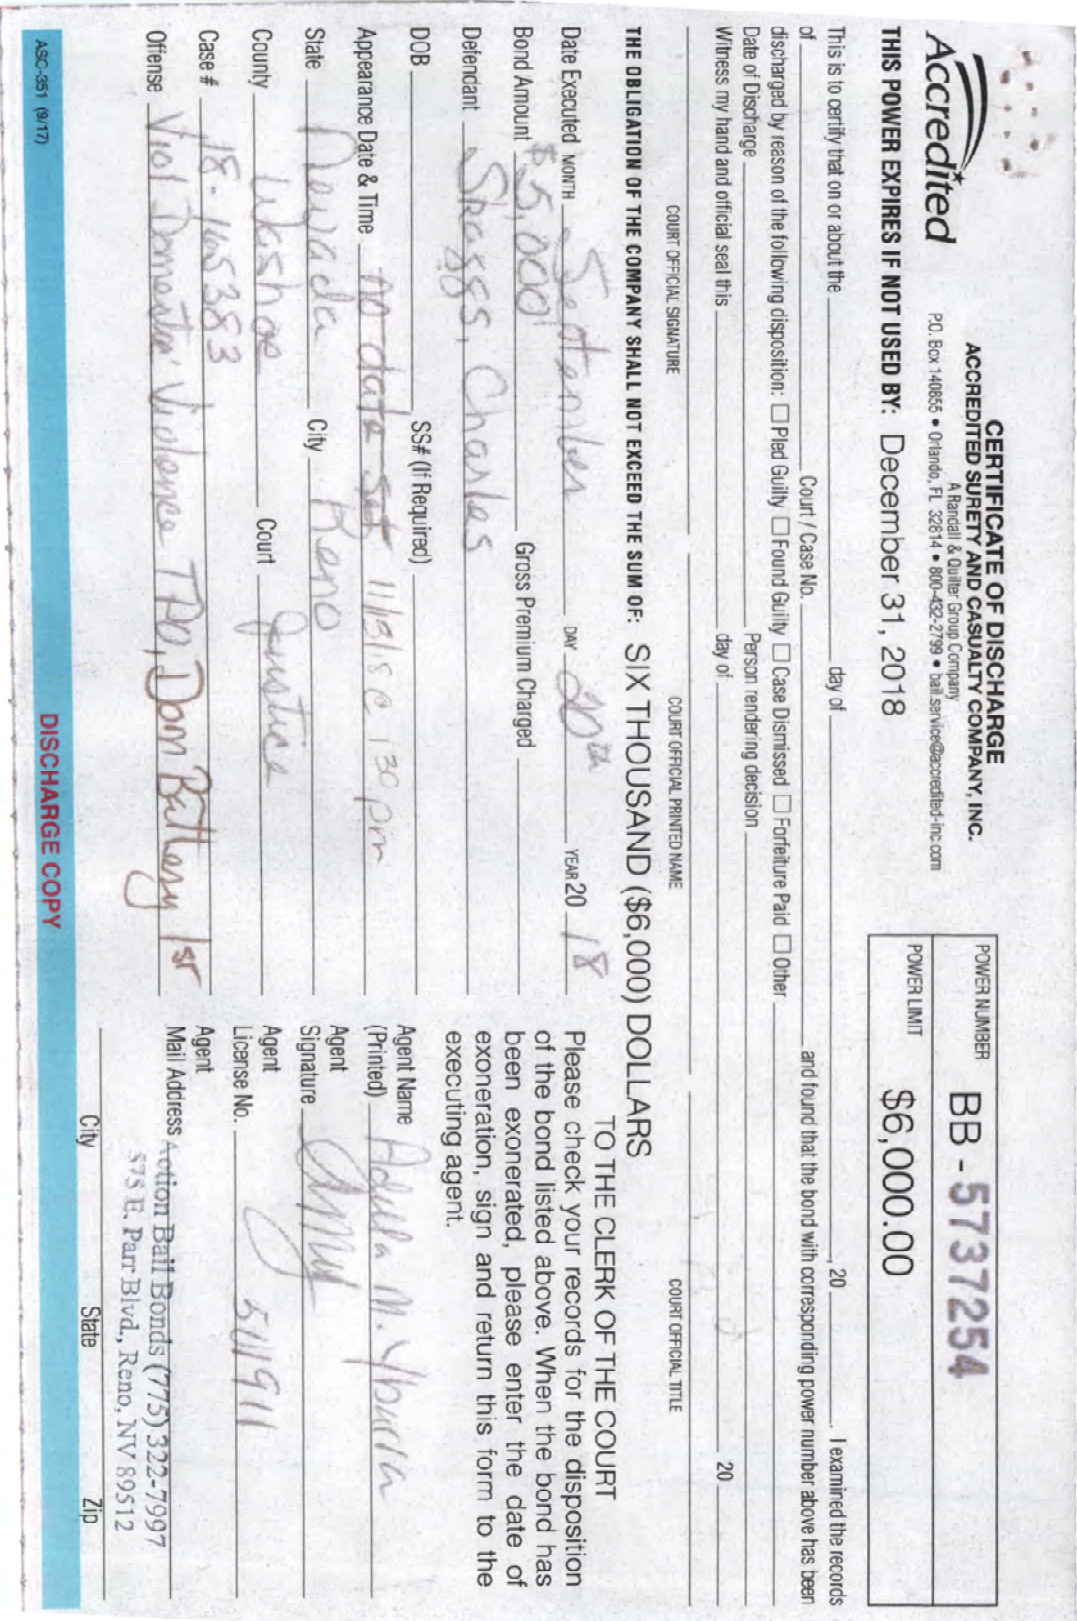 Accredited
CERTIFICATE OF DISCHARGE
ACCREDITED SURETY AND CASUALTY COMPANY, INC.
A Randall & Quilter Group Company
P.O. Box 140855 • Orlando, FL 32814 • 800-432-2799 • bail.service@accredited-inc.com
POWER NUMBER BB - 5737254
POWER LIMIT $6,000.00
THIS POWER EXPIRES IF NOT USED BY: December 31, 2018
This is to certify that on or about the day of , 20 . I examined the records
of Court / Case No. and found that the bond with corresponding power number above has been
discharged by reason of the following disposition: ☐ Pled Guilty ☐ Found Guilty ☐ Case Dismissed ☐ Forfeiture Paid ☐ Other
Date of Discharge Person rendering decision
Witness my hand and official seal this day of 20
COURT OFFICIAL SIGNATURE COURT OFFICIAL PRINTED NAME COURT OFFICIAL TITLE
THE OBLIGATION OF THE COMPANY SHALL NOT EXCEED THE SUM OF: SIX THOUSAND ($6,000) DOLLARS
Date Executed MONTH September DAY 20th YEAR 20 18
Bond Amount $5,000 Gross Premium Charged
Defendant Spaggs, Charles
DOB SS# (If Required)
Appearance Date & Time no date set 11/13/18 @ 130 pm
State Nevada City Reno
County Washoe Court Justice
Case # 18-165383
Offense Viol Domestic Violence TPO, Dom Battery 1st
TO THE CLERK OF THE COURT
Please check your records for the disposition
of the bond listed above. When the bond has
been exonerated, please enter the date of
exoneration, sign and return this form to the
executing agent.
Agent Name
(Printed) Adella M. Ybarra
Agent
Signature
Agent
License No. 511911
Agent
Mail Address Action Bail Bonds (775) 322-7997
575 E. Parr Blvd., Reno, NV 89512
City State Zip
ASC-351 (9/17)
DISCHARGE COPY